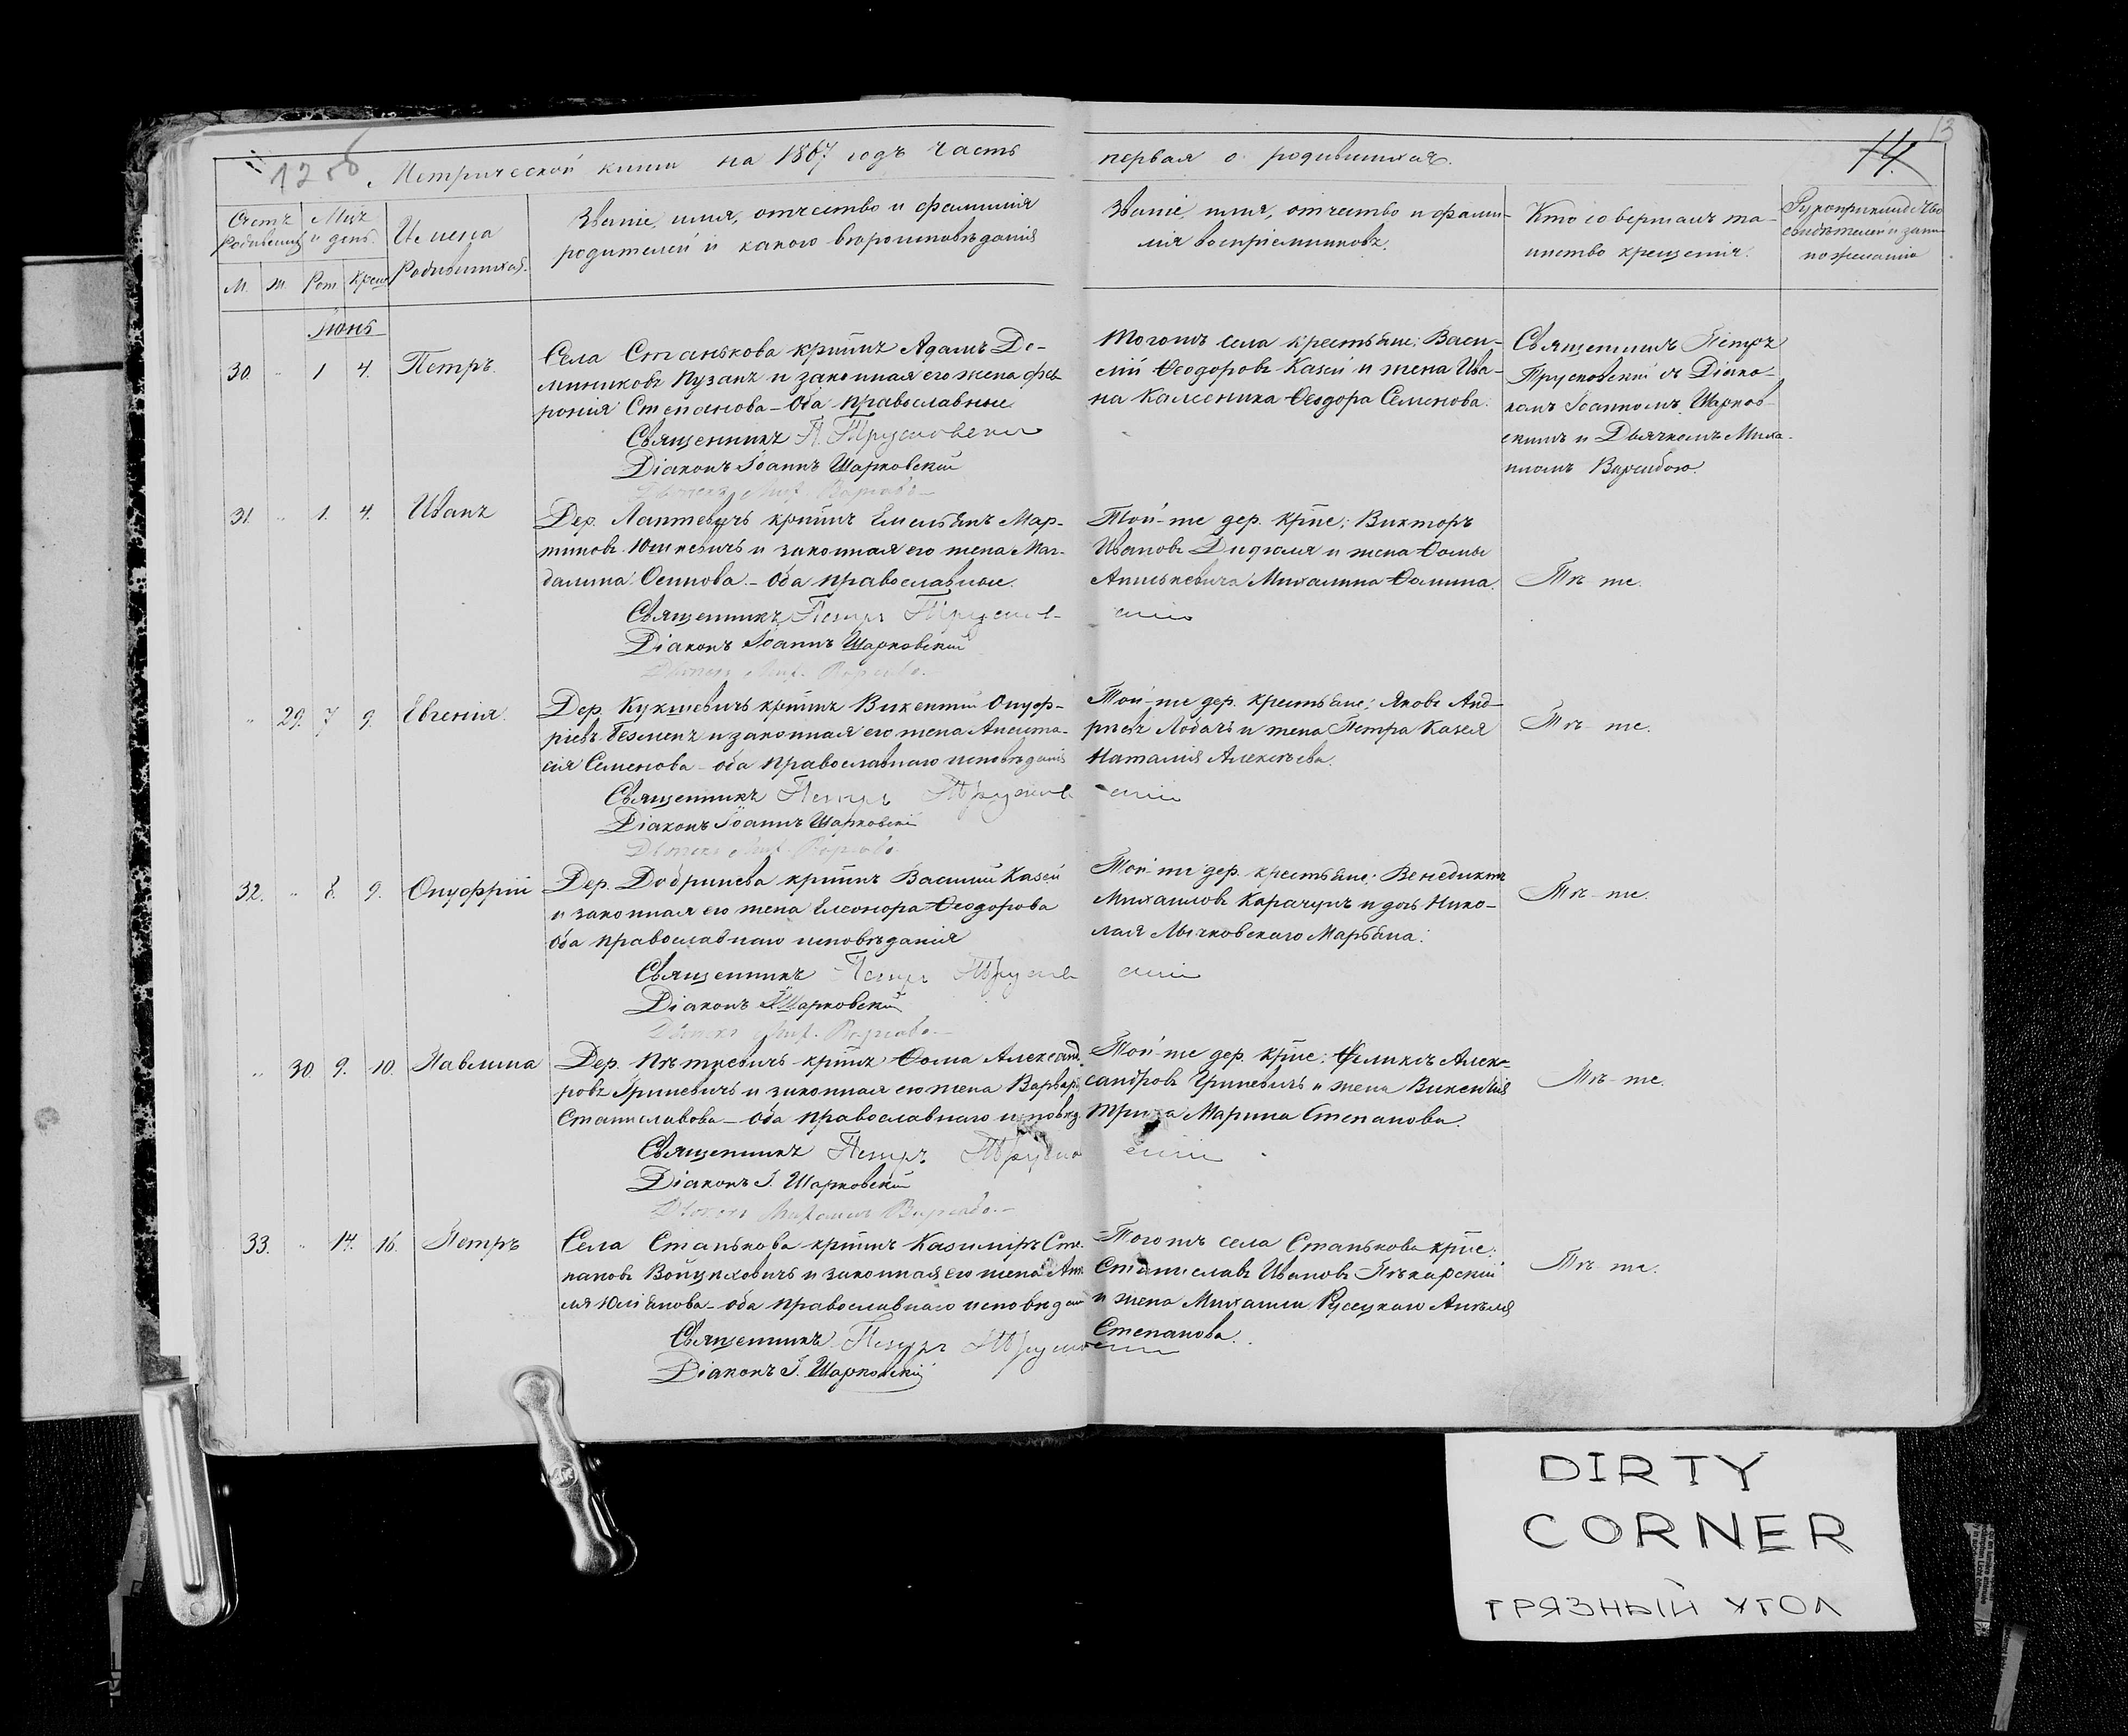 12 об
13
14.
Метрической книги на 1867 годъ часть первая о родившихся.
Счетъ родившихся
Мѣц. и день.
Имена Родившихся.
Званіе, имя, отчество и фамилія
родителей и какого вѣроисповѣданія
Званіе, имя, отчество и фами-
лія воспріемниковъ.
Кто совершалъ та-
инство крещенія.
Рукоприкладство
свидѣтелей о запи
по желанію
М. Ж. Рож Крещ
Іюнь
30. " 1 4. Петръ.
Села Станькова крнинъ Адамъ До-
миниковъ Пузанъ и законная его жена Фев
ронія Степанова – оба православные.
Священникъ П. Трусковскій
Діаконъ Іоаннъ Шарковскій
Тогожъ села крестьяне: Васи-
лій Ѳеодоровъ Казей и жена Ива-
на Каменика Ѳеодора Семенова.
Священникъ Петръ
Трусковскій съ Діако-
номъ Іоанномъ Шарков-
скимъ и Дьячкомъ Миха-
иломъ
31. " 1. 4. Иванъ
Дер. крнинъ Емельянъ Мар-
тиновъ Юшкевичъ и законная его жена Маг-
далина Осипова. – Оба православные.
Священникъ Петръ Трусков-
скій
Діаконъ Іоаннъ Шарковскій
Той-же дер. крне: Викторъ
Ивановъ и жена Ѳомы
Михалина Ѳомина.
Тѣ же.
" 29. 7 9. Евгенія.
Дер. Кукшевичъ крнинъ Викентій Онуф-
ріевъ Безменъ и законная его жена Анаста-
сія Семенова – оба православнаго исповѣданія
Священникъ Петръ Трусков
скій
Діаконъ Іоаннъ Шарковскій
Той-же дер. крестьяне: Яковъ Анд-
реевъ Лобачъ и жена Петра Казея
Наталія Алексѣева.
Тѣ же.
32. " 8. 9. Онуфрій
Дер. Добринева крнинъ Василій Казей
и законная его жена Елеонора Ѳеодорова
оба православнаго исповѣданія
Священникъ Петръ Трусков
скій
Діаконъ І. Шарковскій
Той же дер. крестьяне: Венедиктъ
Михаиловъ Карачунъ и дочь Нико-
лая Лычковскаго Марьяна.
Тѣ же.
" 30. 9. 10. Павлина
Дер. крнинъ Ѳома Александ.
ровъ Гриневичъ и законная его жена Варвара
Станиславова – оба православнаго исповѣд.
Священникъ Петръ Труско
скій
Діаконъ І. Шарковскій
Той же дер. крне: Феликсъ Алек-
сандровъ Гриневичъ и жена Викентія
Марина Степанова.
Тѣ же.
33. " 14. 16. Петръ
Села Станькова крнинъ Казиміръ Сте-
пановъ Войцеховичъ и законная его жена
Юліанова – оба православнаго исповѣдан
Священникъ Петръ Трусковскій
Діаконъ І. Шарковскій
Тогожъ села Станькова крне:
Станиславъ Ивановъ Пѣкарскій
и жена Михаила Русецкаго Анѣля
Степанова.
Тѣ же.
DIRTY
CORNER
ГРЯЗНЫЙ УГОЛ